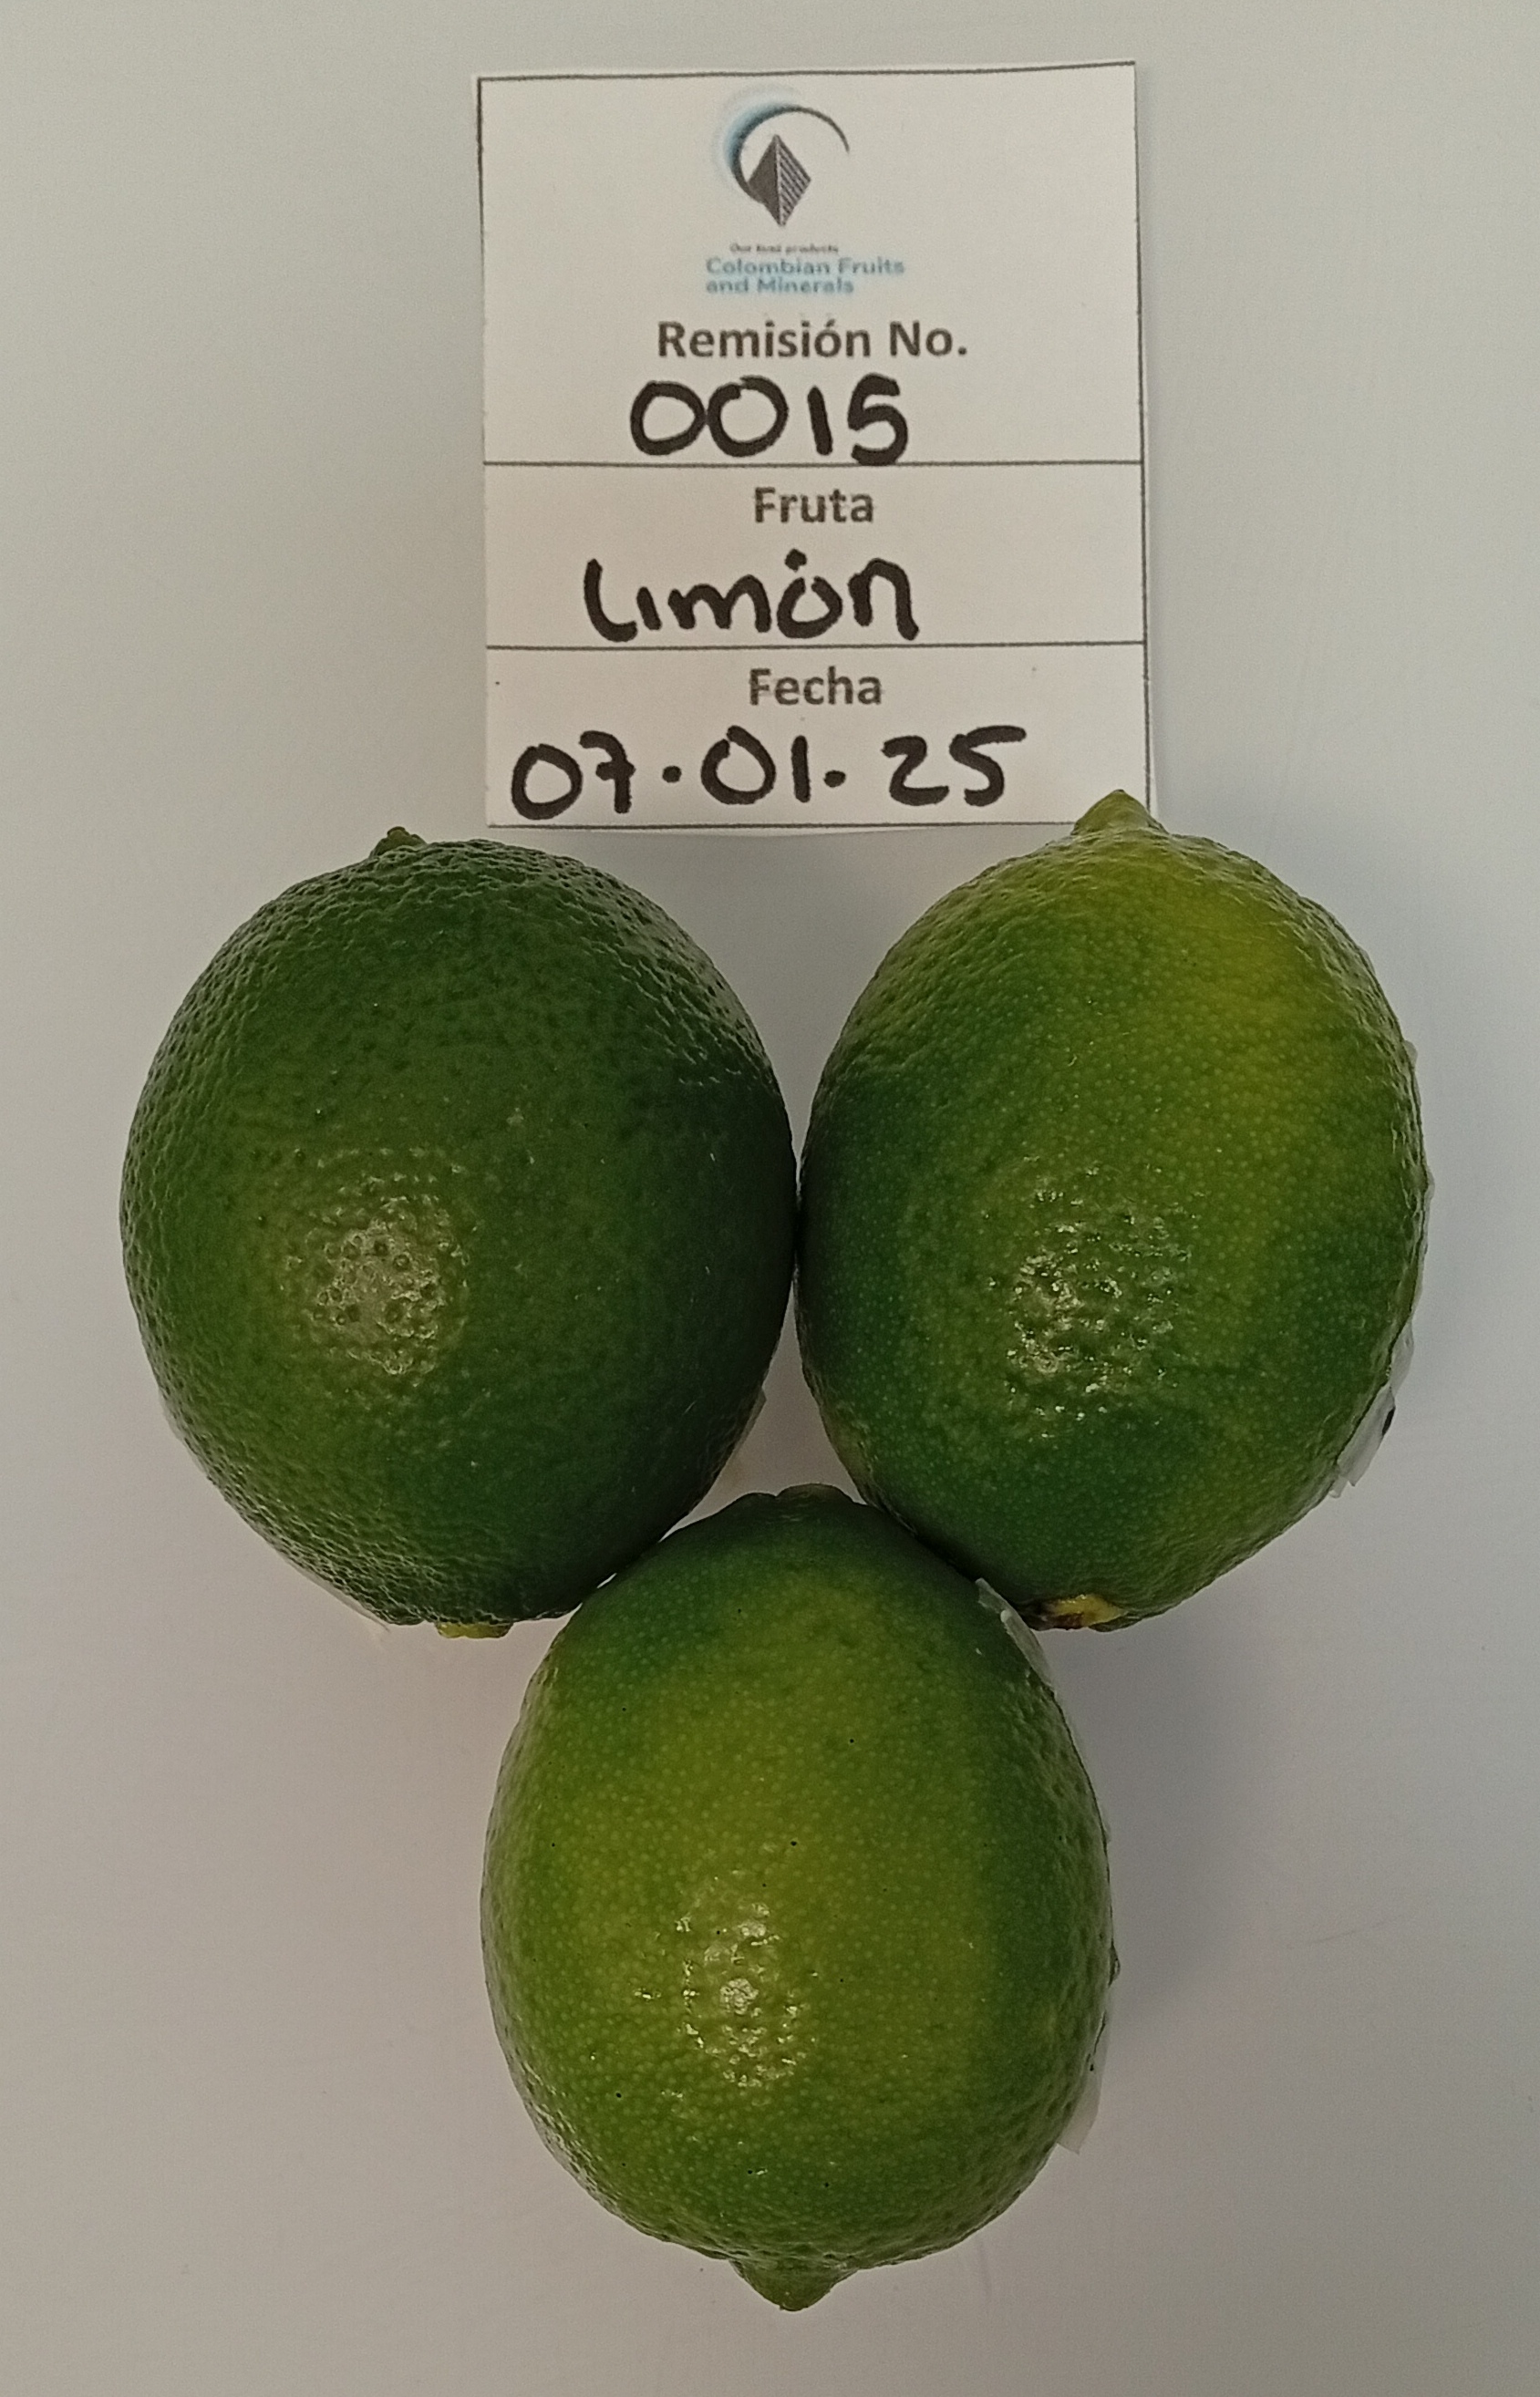 Our best products
Colombian Fruits
and Minerals
Remisión No.
0015
Fruta
Limón
Fecha
07.01.25